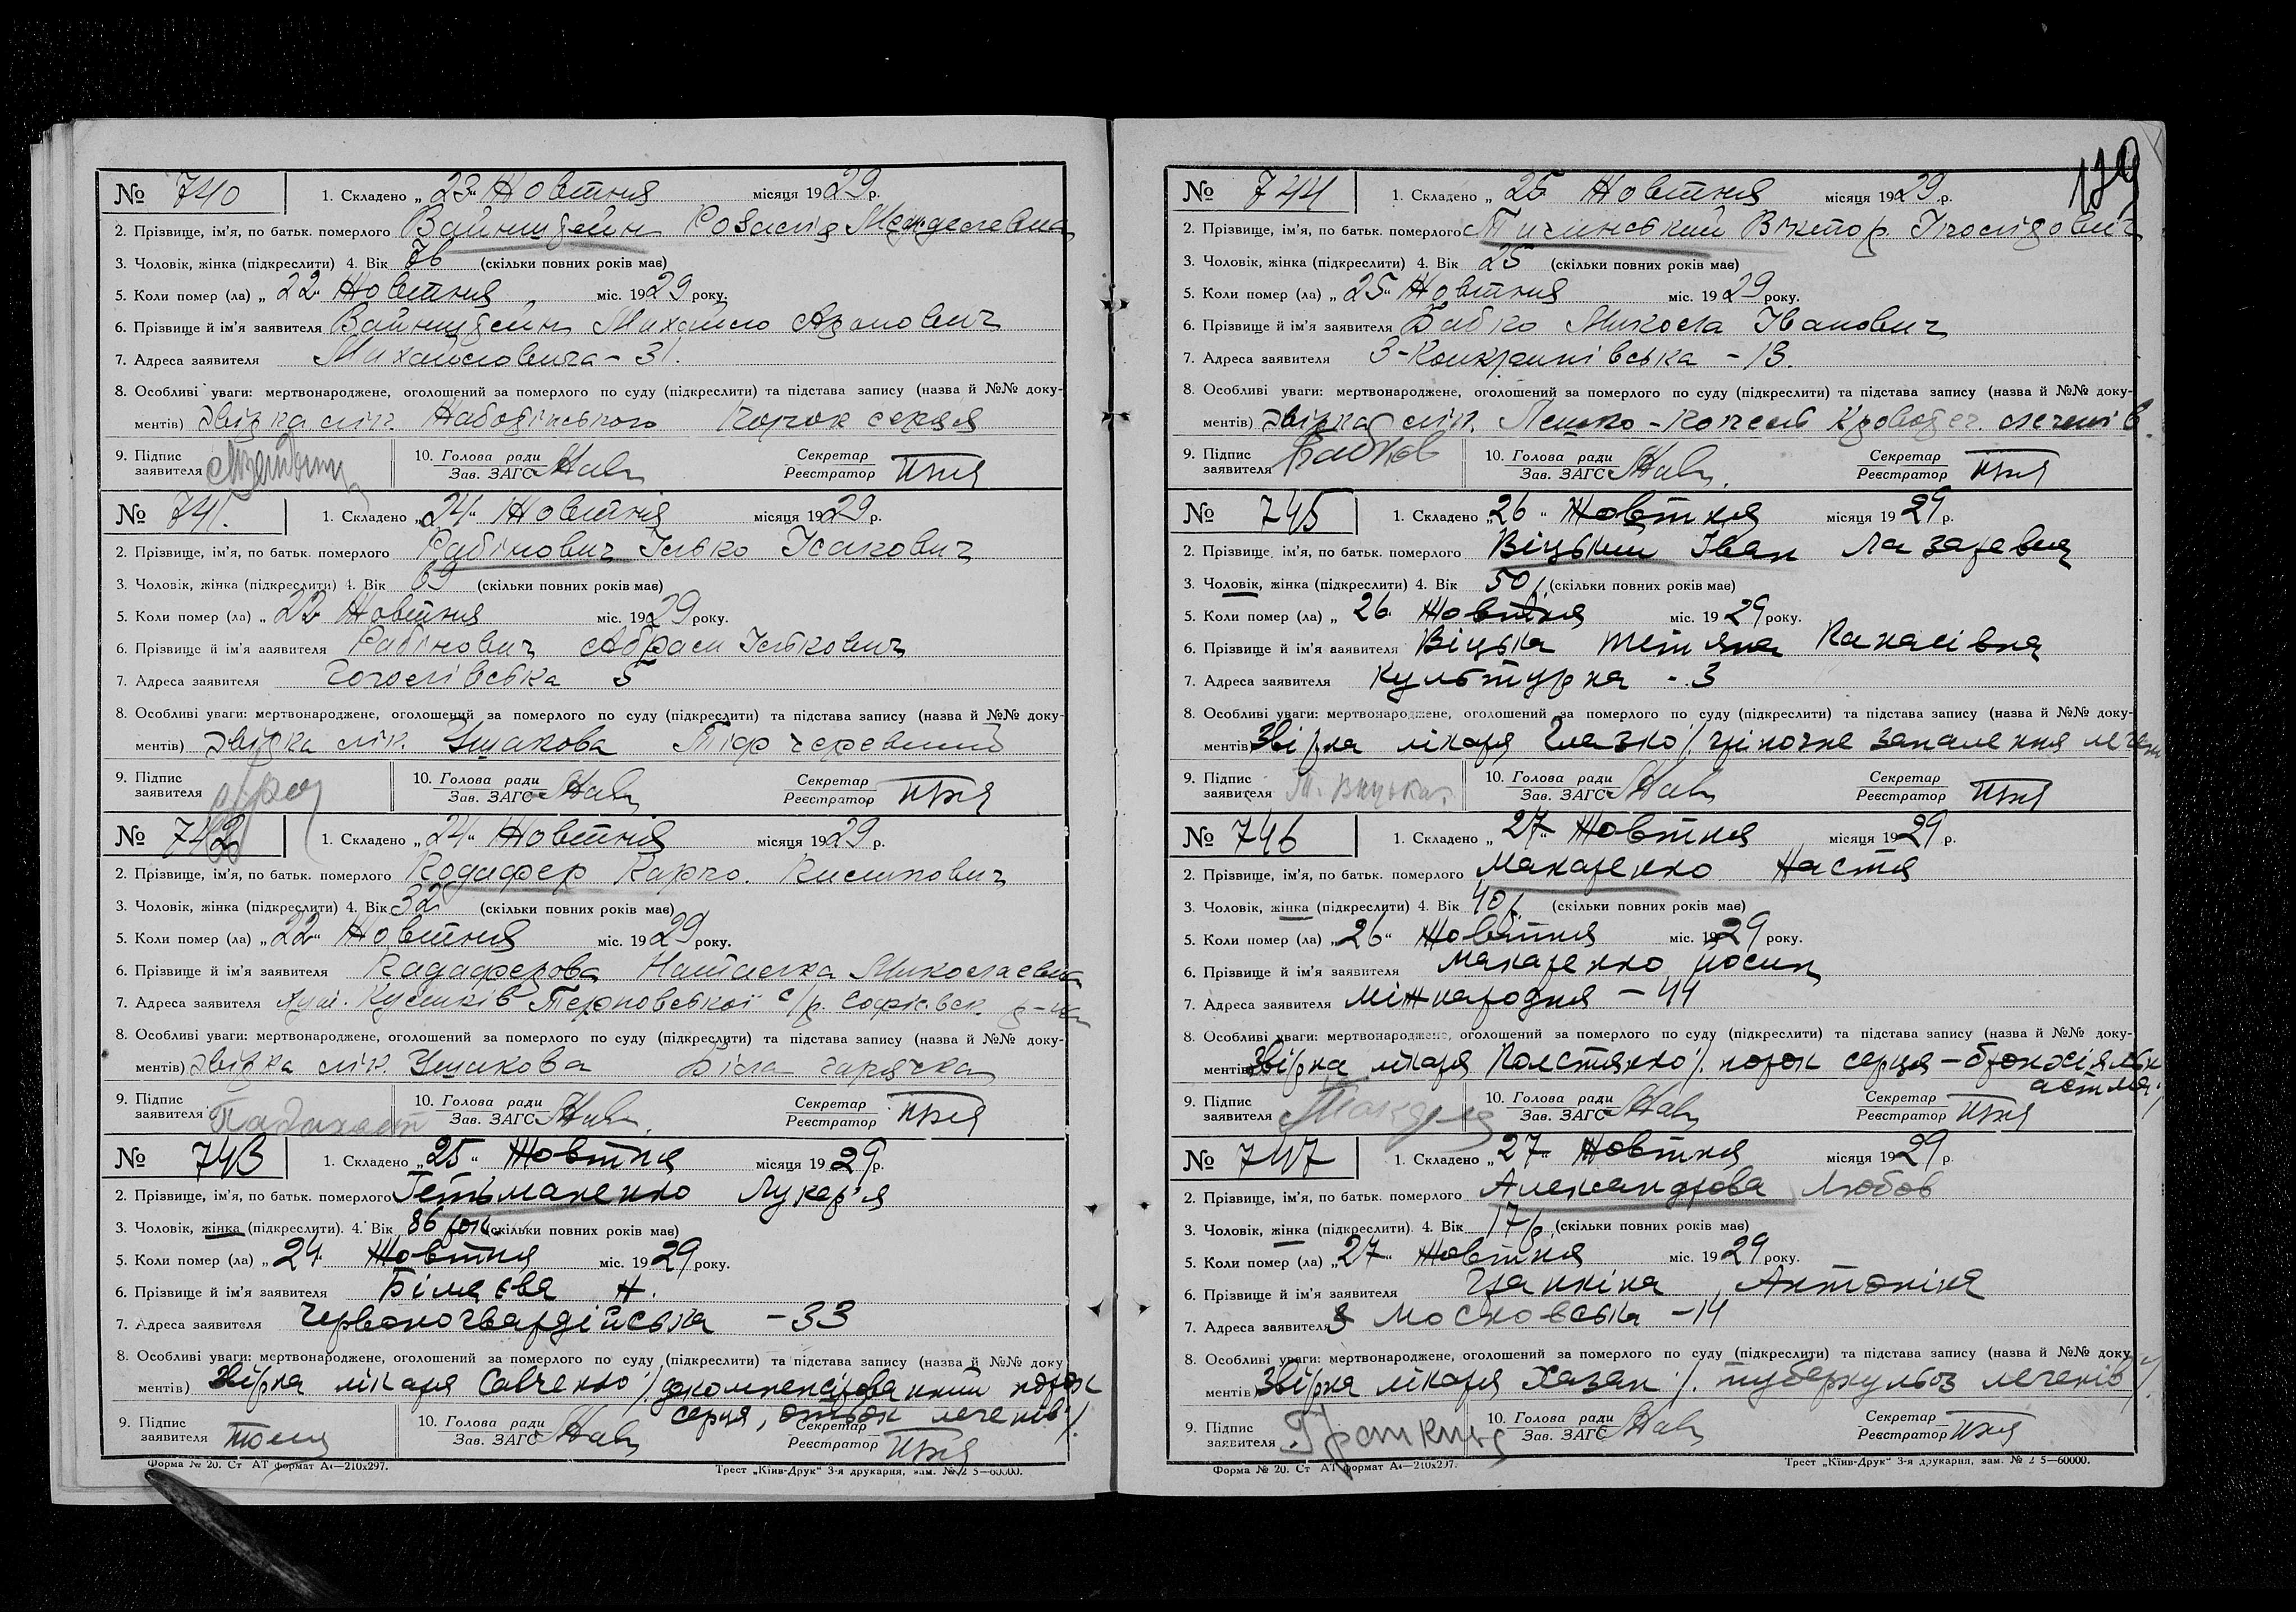 № 740 1. Складено „23“ Жовтня місяця 1929 р.
2. Прізвище, ім'я, по батьк. померлого Вайнштейн Розалія
3. Чоловік, жінка (підкреслити) 4. Вік 76 (скільки повних років має)
5. Коли помер (ла) „22“ Жовтня міс. 1929 року.
6. Прізвище й ім'я заявителя Вайнштейн Михайло Аронович
7. Адреса заявителя Михайловича - 31.
8. Особливі уваги: мертвонароджене, оголошений за померлого по суду (підкреслити) та підстава запису (назва й №№ доку-
ментів) Звідка лік. Порок серця
9. Підпис заявителя 10. Голова ради Зав. ЗАГС Секретар Реєстратор
№ 741. 1. Складено „24“ Жовтня місяця 1929 р.
2. Прізвище, ім'я, по батьк. померлого Рабінович Ілько Ісакович
3. Чоловік, жінка (підкреслити) 4. Вік 69 (скільки повних років має)
5. Коли помер (ла) „22“ Жовтня міс. 1929 року.
6. Прізвище й ім'я заявителя Рабінович АбрамІлькович
7. Адреса заявителя Гоголівська 5
8. Особливі уваги: мертвонароджене, оголошений за померлого по суду (підкреслити) та підстава запису (назва й №№ доку-
ментів) Звідка лік. Ушакова Тіф черевний
9. Підпис заявителя 10. Голова ради Зав. ЗАГС Секретар Реєстратор
№ 742 1. Складено „24“ Жовтня місяця 1929 р.
2. Прізвище, ім'я, по батьк. померлого Кодацфер Карпо.
3. Чоловік, жінка (підкреслити) 4. Вік 32 (скільки повних років має)
5. Коли помер (ла) „22“ Жовтня міс. 1929 року.
6. Прізвище й ім'я заявителя Наталка Миколаевна
7. Адреса заявителя с/р. Софіївськ. р-на
8. Особливі уваги: мертвонароджене, оголошений за померлого по суду (підкреслити) та підстава запису (назва й №№ доку-
ментів) Звідка лік. Ушакова Біла гарячка
9. Підпис заявителя 10. Голова ради Зав. ЗАГС Секретар Реєстратор
№ 743 1. Складено „25“ Жовтня місяця 1929 р.
2. Прізвище, ім'я, по батьк. померлого Гетьманенко Лукер'я
3. Чоловік, жінка (підкреслити). 4. Вік 86 рок. (скільки повних років має)
5. Коли помер (ла) „24“ Жовтня міс. 1929 року.
6. Прізвище й ім'я заявителя Білаєва Н.
7. Адреса заявителя Червоногвардійська - 33
8. Особливі уваги: мертвонароджене, оголошений за померлого по суду (підкреслити) та підстава запису (назва й №№ доку
ментів) Звідка лікаря Савченко /. порок
серця, отьок легенів /.
9. Підпис заявителя 10. Голова ради Зав. ЗАГС Секретар Реєстратор
Форма № 20. Ст АТ формат А4—210x297. Трест „Київ-Друк“ 3-я друкарня, зам. 5—60000.
179
№ 744 1. Складено „25 Жовтня місяця 1929 р.
2. Прізвище, ім'я, по батьк. померлого Тичинський Віктор
3. Чоловік, жінка (підкреслити) 4. Вік 25 (скільки повних років має)
5. Коли помер (ла) „25“ Жовтня міс. 1929 року.
6. Прізвище й ім'я заявителя Бабко Микола Іванович
7. Адреса заявителя - 13.
8. Особливі уваги: мертвонароджене, оголошений за померлого по суду (підкреслити) та підстава запису (назва й №№ доку-
ментів) Звідка лік. Кровотеч. легенів.
9. Підпис заявителя Бабков 10. Голова ради Зав. ЗАГС Секретар Реєстратор
№ 745 1. Складено „26“ Жовтня місяця 1929 р.
2. Прізвище, ім'я, по батьк. померлого Віцький Іван Лазаревич
3. Чоловік, жінка (підкреслити) 4. Вік 50 р. (скільки повних років має)
5. Коли помер (ла) „26“ Жовтня міс. 1929 року.
6. Прізвище й ім'я заявителя Віцька Тетяна Панасівна
7. Адреса заявителя Культурна - 3
8. Особливі уваги: мертвонароджене, оголошений за померлого по суду (підкреслити) та підстава запису (назва й №№ доку-
ментів) Звідка лікаря Глазко /. запалення легень
9. Підпис заявителя Т. Вицька. 10. Голова ради Зав. ЗАГС Секретар Реєстратор
№ 746 1. Складено „27“ Жовтня місяця 1929 р.
2. Прізвище, ім'я, по батьк. померлого Макаренко Настя
3. Чоловік, жінка (підкреслити) 4. Вік 40 р. (скільки повних років має)
5. Коли помер (ла) „26“ Жовтня міс. 1929 року.
6. Прізвище й ім'я заявителя Макаренко Йосип
7. Адреса заявителя Міжнародня - 44
8. Особливі уваги: мертвонароджене, оголошений за померлого по суду (підкреслити) та підстава запису (назва й №№ доку-
ментів) Звідка лікаря Толстянко /. порок серця - бронхіяльн
астма /.
9. Підпис заявителя 10. Голова ради Зав. ЗАГС Секретар Реєстратор
№ 747 1. Складено „27“ Жовтня місяця 1929 р.
2. Прізвище, ім'я, по батьк. померлого Александрова Любов
3. Чоловік, жінка (підкреслити). 4. Вік 17 р. (скільки повних років має)
5. Коли помер (ла) „27“ Жовтня міс. 1929 року.
6. Прізвище й ім'я заявителя Цапкіна Антоніна
7. Адреса заявителя 3 Московська - 14
8. Особливі уваги: мертвонароджене, оголошений за померлого по суду (підкреслити) та підстава запису (назва й №№ доку
ментів) Звідка лікаря Хазан /. туберкульоз легенів /.
9. Підпис заявителя 10. Голова ради Зав. ЗАГС Секретар Реєстратор
Форма № 20. Ст АТ формат А4—210x297. Трест „Київ-Друк“ 3-я друкарня, зам. № 2 5—60000.